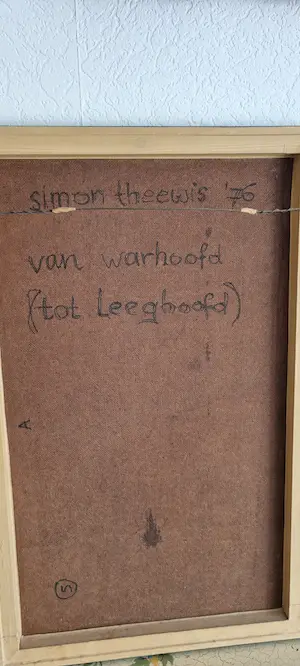 simon theewis '76
van warhoofd
(tot Leeghoofd)
A
5